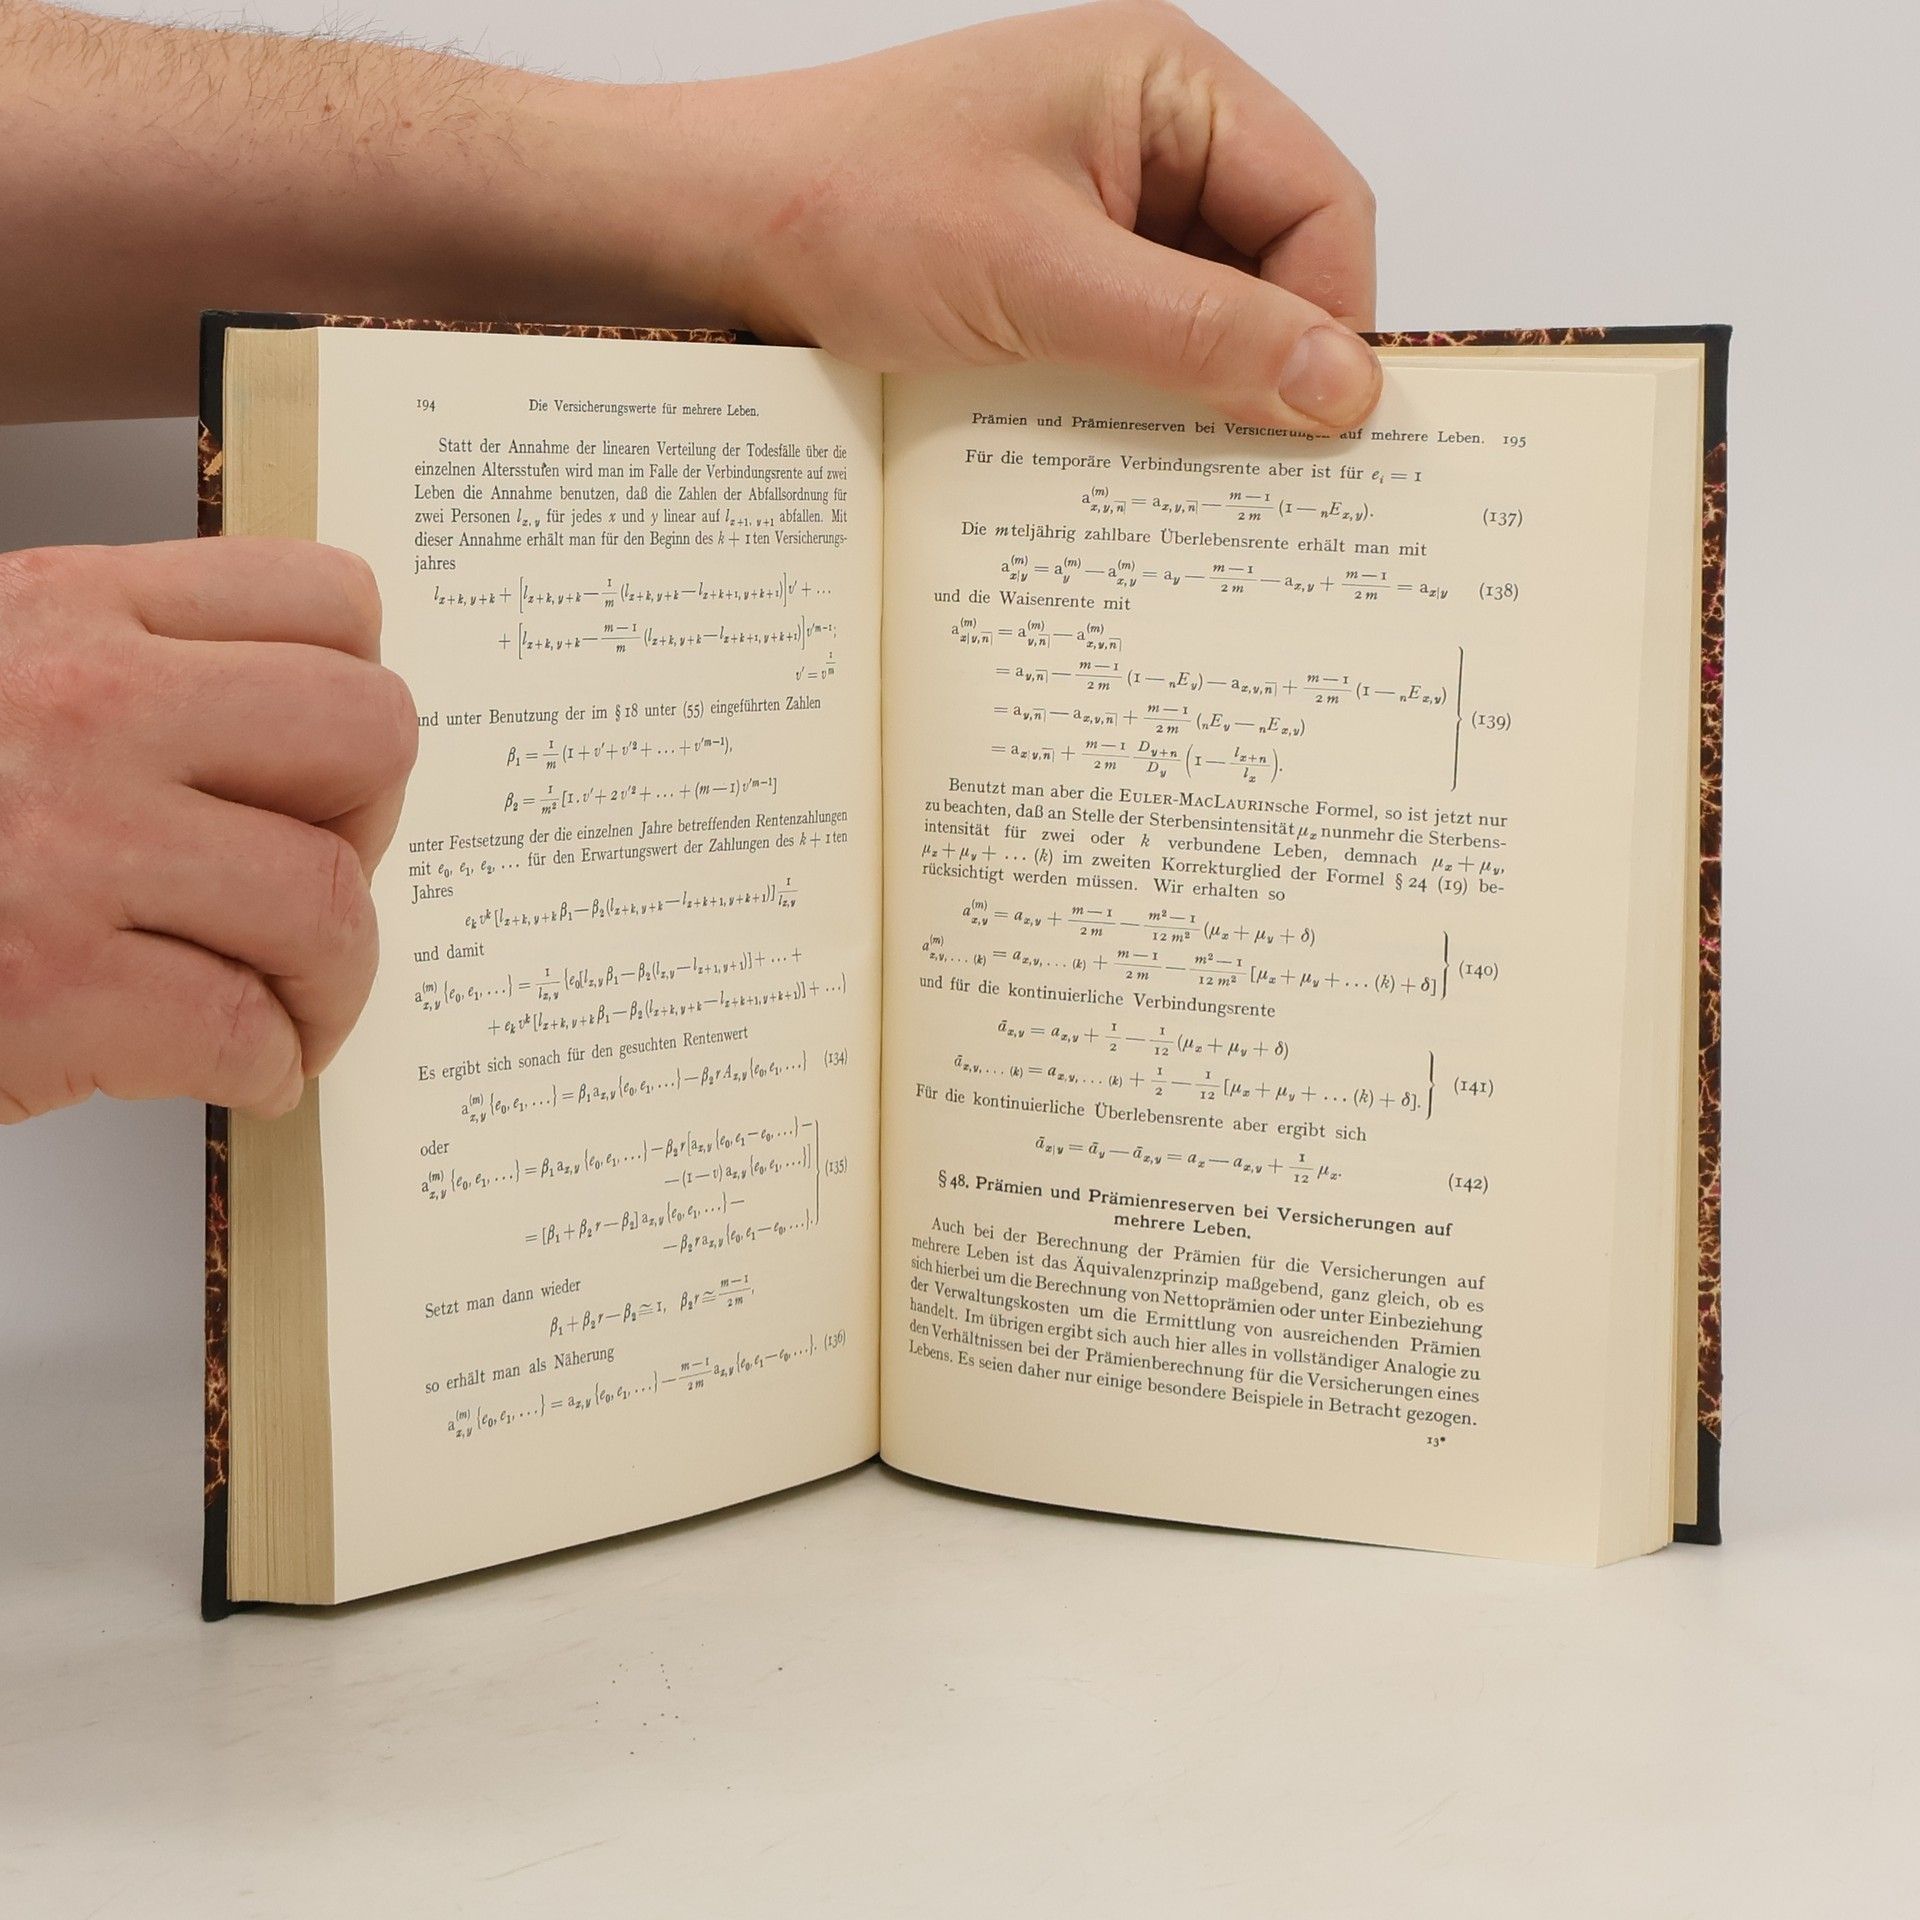 194 Die Versicherungswerte für mehrere Leben.
Statt der Annahme der linearen Verteilung der Todesfälle über die
einzelnen Altersstufen wird man im Falle der Verbindungsrente auf zwei
Leben die Annahme benutzen, daß die Zahlen der Abfallsordnung für
zwei Personen l_{x, y} für jedes x und y linear auf l_{x+1, y+1} abfallen. Mit
dieser Annahme erhält man für den Beginn des k + 1ten Versicherungs-
jahres
l_{x+k, y+k} + [l_{x+k, y+k} − 1/m (l_{x+k, y+k} − l_{x+k+1, y+k+1})] v' + ...
+ [l_{x+k, y+k} − (m−1)/m (l_{x+k, y+k} − l_{x+k+1, y+k+1})] v'^{m−1};
v' = v^{1/m}
und unter Benutzung der im § 18 unter (55) eingeführten Zahlen
β_1 = 1/m (1 + v' + v'^2 + ... + v'^{m−1}),
β_2 = 1/m^2 [1 . v' + 2 v'^2 + ... + (m − 1) v'^{m−1}]
unter Festsetzung der die einzelnen Jahre betreffenden Rentenzahlungen
mit e_0, e_1, e_2, ... für den Erwartungswert der Zahlungen des k + 1ten
Jahres
e_k v^k [l_{x+k, y+k} β_1 − β_2 (l_{x+k, y+k} − l_{x+k+1, y+k+1})] 1/l_{x,y}
und damit
a^{(m)}_{x,y} {e_0, e_1, ...} = 1/l_{x,y} {e_0[l_{x,y} β_1 − β_2 (l_{x,y} − l_{x+1, y+1})] + ... +
+ e_k v^k [l_{x+k, y+k} β_1 − β_2 (l_{x+k, y+k} − l_{x+k+1, y+k+1})] + ...}
Es ergibt sich sonach für den gesuchten Rentenwert
a^{(m)}_{x,y} {e_0, e_1, ...} = β_1 a_{x,y} {e_0, e_1, ...} − β_2 r A_{x,y} {e_0, e_1, ...} (134)
oder
a^{(m)}_{x,y} {e_0, e_1, ...} = β_1 a_{x,y} {e_0, e_1, ...} − β_2 r [a_{x,y} {e_0, e_1 − e_0, ...} −
− (1 − v) a_{x,y} {e_0, e_1, ...}] (135)
= [β_1 + β_2 r − β_2] a_{x,y} {e_0, e_1, ...} −
− β_2 r a_{x,y} {e_0, e_1 − e_0, ...}.
Setzt man dann wieder
β_1 + β_2 r − β_2 ≅ 1, β_2 r ≅ (m−1)/2m,
so erhält man als Näherung
a^{(m)}_{x,y} {e_0, e_1, ...} = a_{x,y} {e_0, e_1, ...} − (m−1)/2m a_{x,y} {e_0, e_1 − e_0, ...}. (136)
Prämien und Prämienreserven bei Versicherungen auf mehrere Leben. 195
Für die temporäre Verbindungsrente aber ist für e_i = 1
a^{(m)}_{x,y,n̅|} = a_{x,y,n̅|} − (m−1)/2m (1 − _nE_{x,y}). (137)
Die mteljährig zahlbare Überlebensrente erhält man mit
a^{(m)}_{x|y} = a^{(m)}_y − a^{(m)}_{x,y} = a_y − (m−1)/2m − a_{x,y} + (m−1)/2m = a_{x|y} (138)
und die Waisenrente mit
a^{(m)}_{x|y,n̅|} = a^{(m)}_{y,n̅|} − a^{(m)}_{x,y,n̅|}
= a_{y,n̅|} − (m−1)/2m (1 − _nE_y) − a_{x,y,n̅|} + (m−1)/2m (1 − _nE_{x,y})
= a_{y,n̅|} − a_{x,y,n̅|} + (m−1)/2m (_nE_y − _nE_{x,y}) (139)
= a_{x|y,n̅|} + (m−1)/2m D_{y+n}/D_y (1 − l_{x+n}/l_x).
Benutzt man aber die EULER-MACLAURINsche Formel, so ist jetzt nur
zu beachten, daß an Stelle der Sterbensintensität μ_x nunmehr die Sterbens-
intensität für zwei oder k verbundene Leben, demnach μ_x + μ_y,
μ_x + μ_y + ... (k) im zweiten Korrekturglied der Formel § 24 (19) be-
rücksichtigt werden müssen. Wir erhalten so
a^{(m)}_{x,y} = a_{x,y} + (m−1)/2m − (m²−1)/12m² (μ_x + μ_y + δ)
a^{(m)}_{x,y,...(k)} = a_{x,y,...(k)} + (m−1)/2m − (m²−1)/12m² [μ_x + μ_y + ... (k) + δ] (140)
und für die kontinuierliche Verbindungsrente
ā_{x,y} = a_{x,y} + 1/2 − 1/12 (μ_x + μ_y + δ)
ā_{x,y,...(k)} = a_{x,y,...(k)} + 1/2 − 1/12 [μ_x + μ_y + ... (k) + δ]. (141)
Für die kontinuierliche Überlebensrente aber ergibt sich
ā_{x|y} = ā_y − ā_{x,y} = a_x − a_{x,y} + 1/12 μ_x. (142)
§ 48. Prämien und Prämienreserven bei Versicherungen auf
mehrere Leben.
Auch bei der Berechnung der Prämien für die Versicherungen auf
mehrere Leben ist das Äquivalenzprinzip maßgebend, ganz gleich, ob es
sich hierbei um die Berechnung von Nettoprämien oder unter Einbeziehung
der Verwaltungskosten um die Ermittlung von ausreichenden Prämien
handelt. Im übrigen ergibt sich auch hier alles in vollständiger Analogie zu
den Verhältnissen bei der Prämienberechnung für die Versicherungen eines
Lebens. Es seien daher nur einige besondere Beispiele in Betracht gezogen.
13*